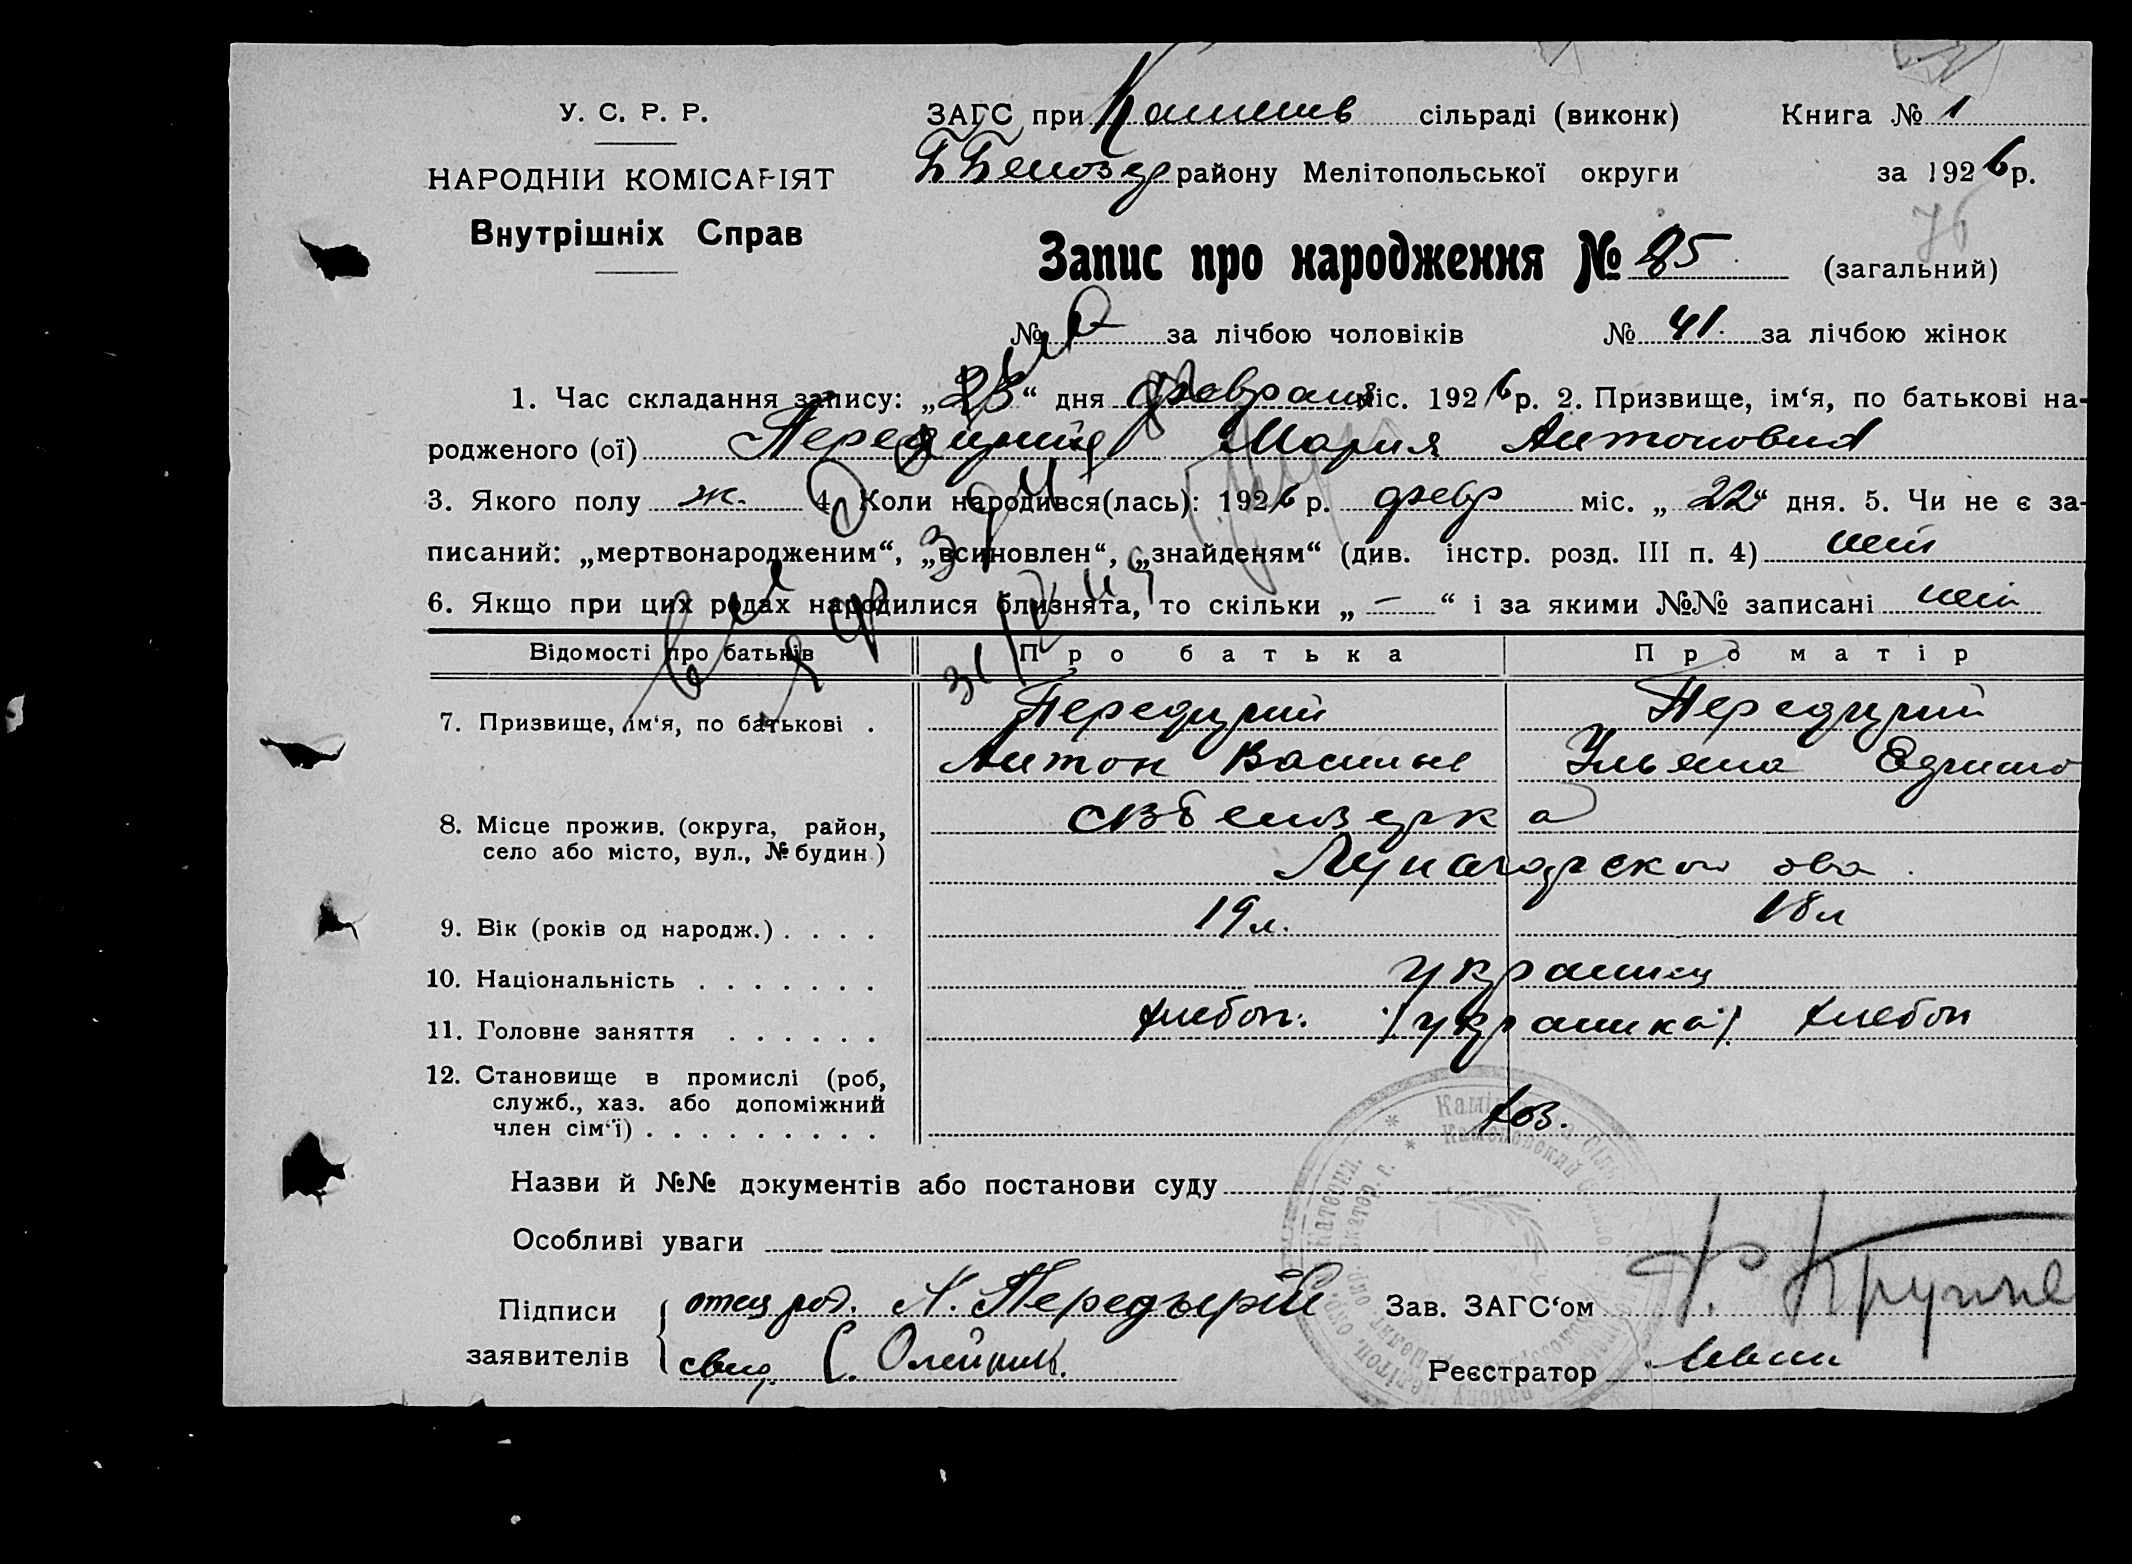 У. С. Р. Р.
НАРОДНІЙ КОМІСАРІЯТ
Внутрішніх Справ
ЗАГС при сільраді (виконк) Книга № 1
району Мелітопольської округи за 1926 р.
76
Запис про народження № 85 (загальний)
№ за лічбою чоловіків № 41 за лічбою жінок
1. Час складання запису: „23“ дня февраля міс. 1926 р. 2. Призвище, ім‘я, по батькові на-
родженого (ої) Мария Антоновна
3. Якого полу ж. 4. Коли народився(лась): 1926 р. февр міс. „22“ дня. 5. Чи не є за-
писаний: „мертвонародженим“, „всиновлен“, „знайденям“ (див. інстр. розд. III п. 4) нет
6. Якщо при цих родах народилися близнята, то скільки „ – “ і за якими №№ записані нет
Відомості про батьків Про батька Про матір
7. Призвище, ім‘я, по батькові . Передирий Передирий
Антон Василье Ульяна
8. Місце прожив. (округа, район,
село або місто, вул., № будин.)
9. Вік (років од народж.) . . . . 19 л. 18 л
10. Національність . . . . . . . украинец
11. Головне заняття . . . . . . хлебоп. /украинка/ хлебоп
12. Становище в промислі (роб,
служб., хаз. або допоміжний
член сім‘ї) . . . . . . . . . хоз.
Назви й №№ документів або постанови суду
Особливі уваги
Підписи отец род. А. Передырій Зав. ЗАГС‘ом
заявителів свид. С. Олейник. Реєстратор